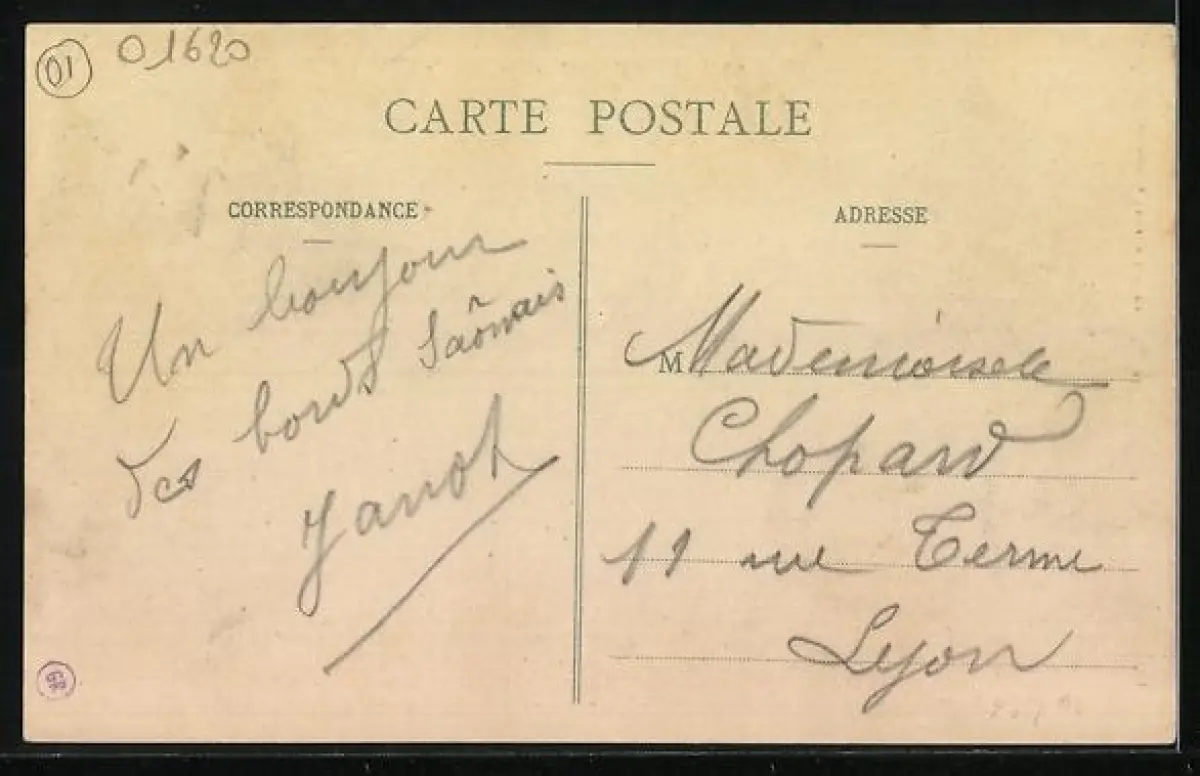 01 01620
CARTE POSTALE
CORRESPONDANCE
Un bonjour
des bords Saônnais
Janot
ADRESSE
M Mademoiselle
Chopard
11 rue Terme
Lyon